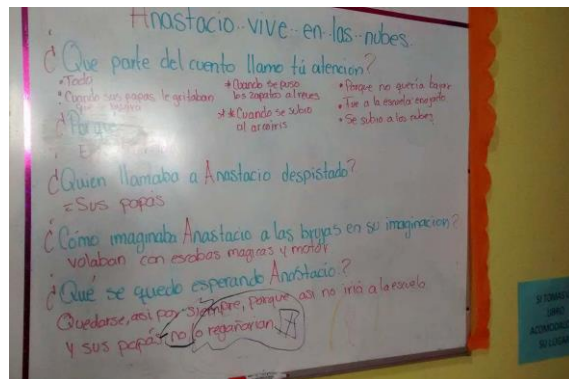 Anastacio..vive..en..las..nubes..
¿Que parte del cuento llamo tú atencion?
•Todo
•Cuando sus papas le gritaban
que
*Cuando se puso
los zapatos al reves
**Cuando se subio
al arcoiris
•Porque no queria bajar
•Fue a la escuela enojado
•Se subio a las nubes
¿Porque
¿Quien llamaba a Anastacio despistado?
=Sus papas
¿Cómo imaginaba Anastacio a las brujas en su imaginacion?
volaban con escobas magicas y motor
¿Qué se quedo esperando Anastacio?
Quedarse, asi por siempre, porque asi no iria a la escuela
y sus papás no lo regañarian.
SI TOMAS
LIBRO
ACOMODALO
SU LUGAR